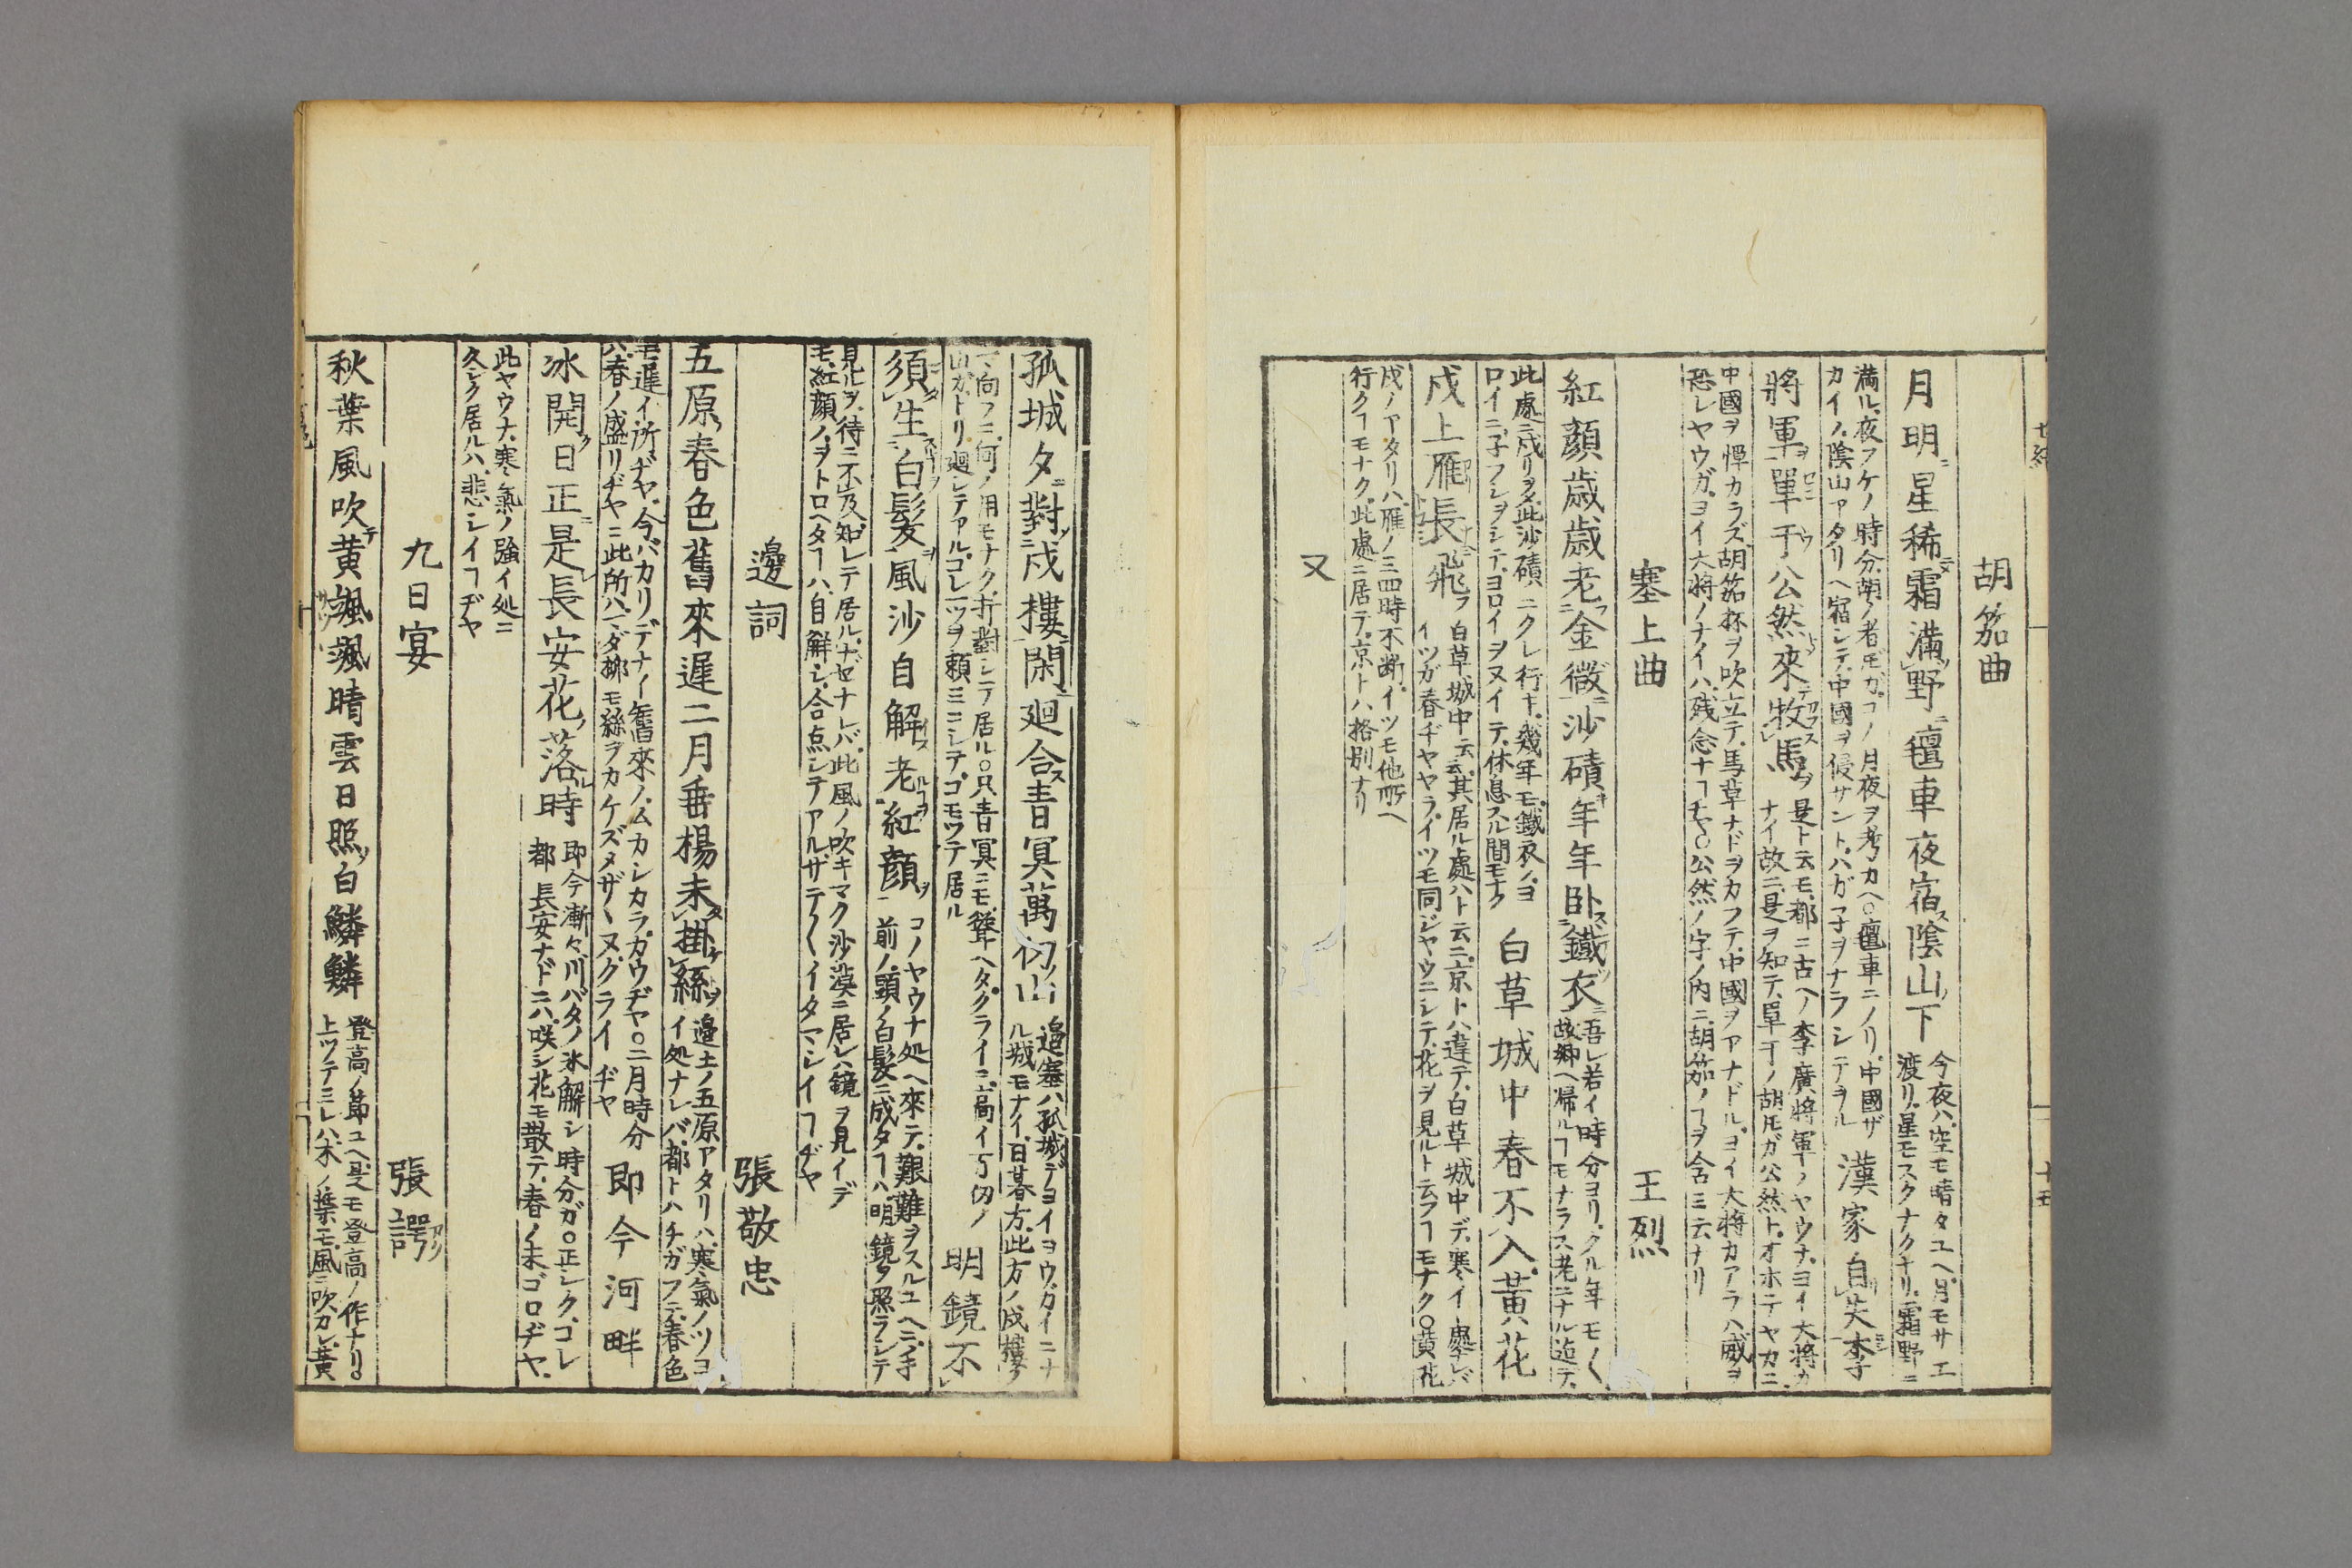 胡笳曲
月明星稀霜満野氊車夜宿陰山下
今夜ハ空モ晴タユヘ月モサエ
渡リ星モスクナクナリ霜野ニ
満ル夜フケノ時分胡ノ者𪜈ガコノ月夜ヲ考カヘ〇氊車ニノリ中國ザ
カイノ陰山アタリヘ宿シテ中國ヲ侵サントハガマ子ヲナラシテヲル
漢家自失李
將軍單于公然來牧馬
是ト云モ都ニ古ヘノ李廣將軍ノヤウナヨイ大將ガ
ナイ故ニ是ヲ知テ單于ノ胡𪜈ガ公然トオホテヤカニ
中國ヲ憚カラズ胡笳杯ヲ吹立テ馬草ナドヲカフテ中國ヲアナドルヨイ大將カアラハ威ヲ
恐レヤウガヨイ大將ノナイハ残念ナヿヂヤ〇公然ノ字ノ内ニ胡笳ノヿヲ含ミテナリ
塞上曲
王烈
紅顔歳歳老金微沙磧年年卧鐵衣
吾レ若イ時分ヨリクル年モ〱
故郷ヘ帰ルヿモナラス老ニナル迠テ
此處ニ戍リヲシ此沙磧ニクレ行キ幾年モ鐵衣ノヨ
ロイニ子フシヲシテヨロイヲヌイテ休息スル間モナク
白草城中春不入黄花
戍上雁張飛
白草城中云云其居ル處ハト云ニ京トハ違テ白草城中デ寒イ處レバ
イツガ春ヂヤヤライツモ同ジヤウニシテ花ヲ見ルト云フヿモナク〇黄花
戍ノアタリハ雁ノ三四時不断イツモ他所ヘ
行クヿモナク此處ニ居テ京トハ格別ナリ
又
孤城夕對戍樓閑廻合青冥萬仞山
邉塞ハ孤城デヨイヨウガイニナ
ル城モナイ日暮方此方ノ戍樓ヲ
マ向フニ何ノ用モナク打對シテ居ル〇只青冥ニモ聳ヘタクライニ高イ万仞ノ
山カトリ廻シテアルコレ一ツヲ頼ミニシテコモツテ居ル
明鏡不
須生白髪風沙自解老紅顔
コノヤウナ処ヘ來テ艱難ヲスルユヘニ手
前ノ頭ノ白髪ニ成タヿハ明鏡ヲ照ラシテ
見ルヲ待ニ不及知レテ居ルナゼナレバ此風ノ吹キマク沙漠ニ居レハ鏡ヲ見イデ
モ紅顔ノヲトロヘタヿハ自解シ合点シテアルザテ〱イタマシイヿヂヤ
邊詞
張敬忠
五原春色舊來遲二月垂楊未掛絲
邉土ノ五原アタリハ寒氣ノツヨ
イ処ナレバ都トハチガフテ春色
モ遅イ所ヂヤ今バカリデナイ舊來ノムカシカラガウヂヤ〇二月時分
ハ春ノ盛リヂヤニ此所ハマダ柳モ絲ヲカケズメザヽヌクライヂヤ
即今河畔
冰開日正是長安花落時
即今漸々川バタノ氷解シ時分ガ〇正シクコレ
都長安ナドニハ咲シ花モ散テ春ノ末ゴロヂヤ
此ヤウナ寒氣ノ強イ処ニ
久シク居ルハ悲シイヿヂヤ
九日宴
張諤
秋葉風吹黄颯颯晴雲日照白鱗鱗
登高ノ節ユヘ是モ登高ノ作ナリ〇
上ツテミレハ木ノ葉モ風ニ吹カレ黄